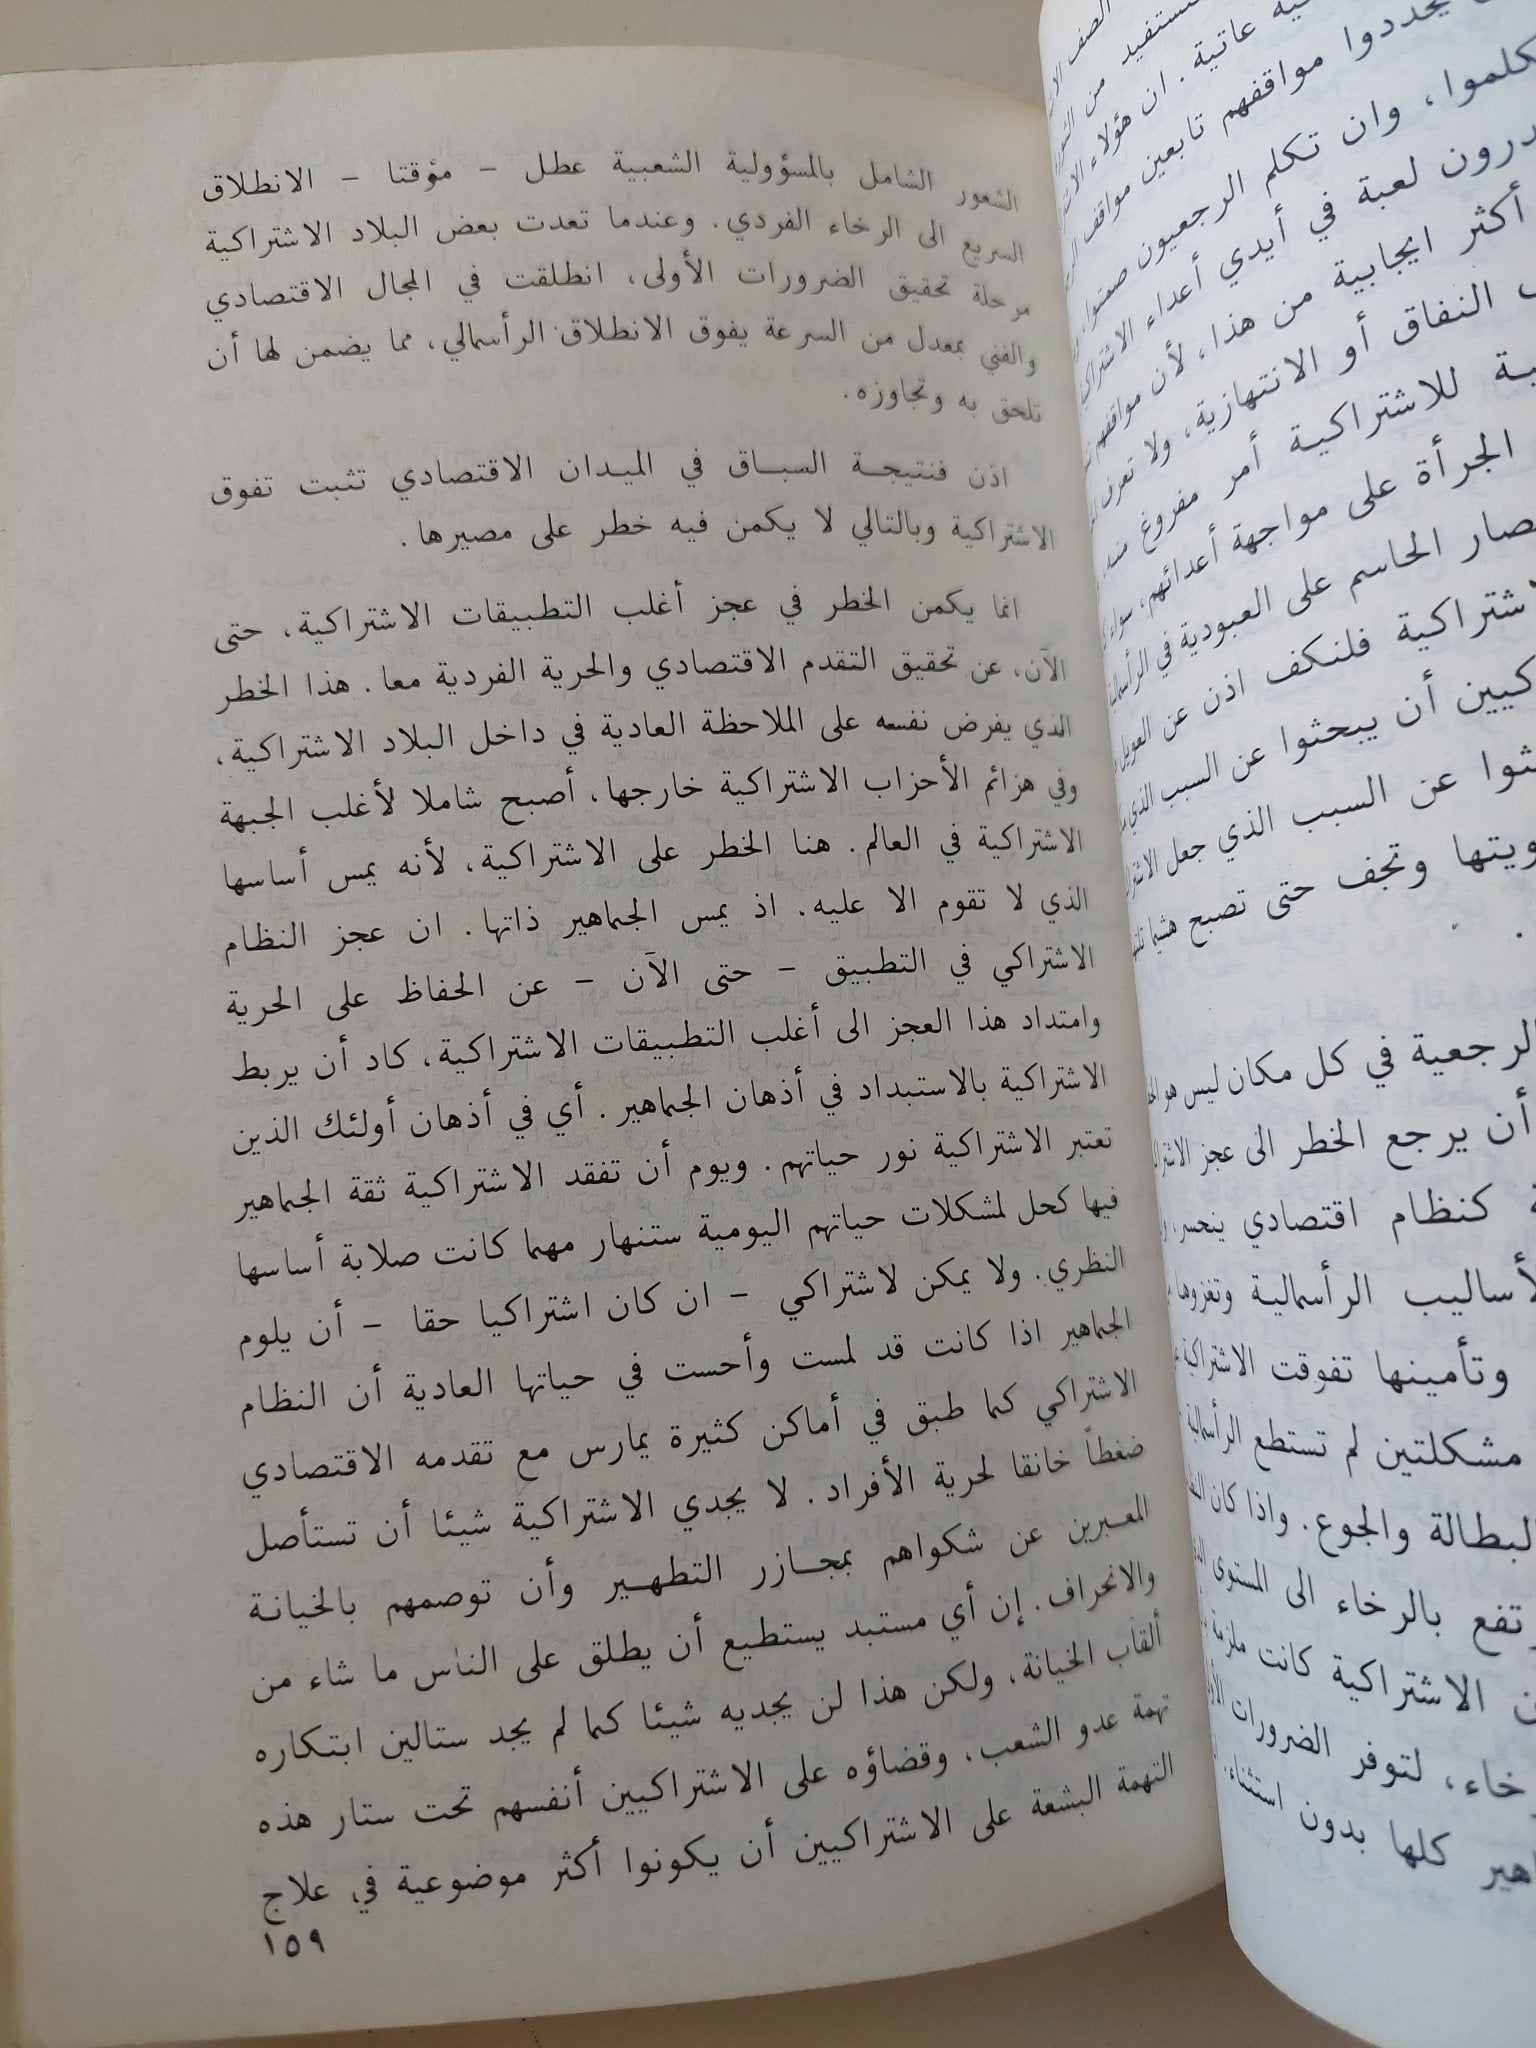 الشعور الشامل بالمسؤولية الشعبية عطل - مؤقتا - الانطلاق
السريع الى الرخاء الفردي. وعندما تعدت بعض البلاد الاشتراكية
مرحلة تحقيق الضرورات الأولى، انطلقت في المجال الاقتصادي
والفني بمعدل من السرعة يفوق الانطلاق الرأسمالي، مما يضمن لها أن
تلحق به وتجاوزه.
اذن فنتيجة السباق في الميدان الاقتصادي تثبت تفوق
الاشتراكية وبالتالي لا يكمن فيه خطر على مصيرها.
انما يكمن الخطر في عجز أغلب التطبيقات الاشتراكية، حتى
الآن، عن تحقيق التقدم الاقتصادي والحرية الفردية معا. هذا الخطر
الذي يفرض نفسه على الملاحظة العادية في داخل البلاد الاشتراكية،
وفي هزائم الأحزاب الاشتراكية خارجها، أصبح شاملا لأغلب الجبهة
الاشتراكية في العالم. هنا الخطر على الاشتراكية، لأنه يمس أساسها
الذي لا تقوم الا عليه. اذ يمس الجماهير ذاتها. ان عجز النظام
الاشتراكي في التطبيق - حتى الآن - عن الحفاظ على الحرية
وامتداد هذا العجز الى أغلب التطبيقات الاشتراكية، كاد أن يربط
الاشتراكية بالاستبداد في أذهان الجماهير. أي في أذهان أولئك الذين
تعتبر الاشتراكية نور حياتهم. ويوم أن تفقد الاشتراكية ثقة الجماهير
فيها كحل لمشكلات حياتهم اليومية ستنهار مهما كانت صلابة أساسها
النظري. ولا يمكن لاشتراكي - ان كان اشتراكيا حقا - أن يلوم
الجماهير اذا كانت قد لمست وأحست في حياتها العادية أن النظام
الاشتراكي كما طبق في أماكن كثيرة يمارس مع تقدمه الاقتصادي
ضغطاً خانقا لحرية الأفراد. لا يجدي الاشتراكية شيئا أن تستأصل
المعبرين عن شكواهم بمجازر التطهير وأن توصمهم بالخيانة
والانحراف. إن أي مستبد يستطيع أن يطلق على الناس ما شاء من
ألقاب الخيانة، ولكن هذا لن يجديه شيئا كما لم يجد ستالين ابتكاره
تهمة عدو الشعب، وقضاؤه على الاشتراكيين أنفسهم تحت ستار هذه
التهمة البشعة على الاشتراكيين أن يكونوا أكثر موضوعية في علاج
١٥٩
عاتية. ان هؤلاء
يحددوا مواقفهم تابعين مواقف
وان تكلم الرجعيون صمتوا،
لعبة في أيدي أعداء
أكثر ايجابية من هذا، لأن مواقفهم
النفاق أو الانتهازية، ولا تعرف
للاشتراكية أمر مفروغ منه
الجرأة على مواجهة أعدائهم، سواء
الحاسم على العبودية في
فلنكف اذن عن العويل
أن يبحثوا عن السبب الذي
عن السبب الذي جعل
وتجف حتى تصبح هشيما
الرجعية في كل مكان ليس هو
أن يرجع الخطر الى عجز
كنظام اقتصادي ينحسر،
الرأسمالية وتغزوها
وتأمينها تفوقت الاشتراكية
مشكلتين لم تستطع الرأسمالية
البطالة والجوع. واذا كان
بالرخاء الى المستوى
الاشتراكية كانت ملزمة
لتوفر الضرورات
كلها بدون استثناء،